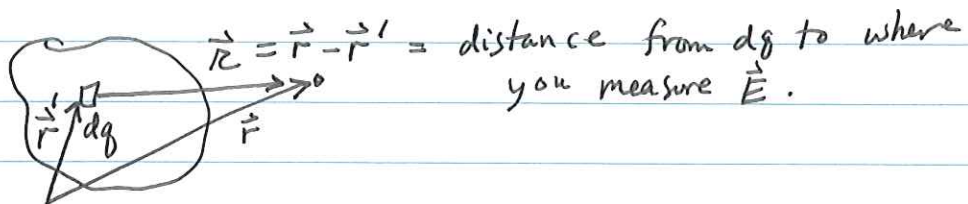 𝓇⃗ = r⃗ - r⃗' = distance from dq to where
you measure E⃗.
r⃗' dq r⃗